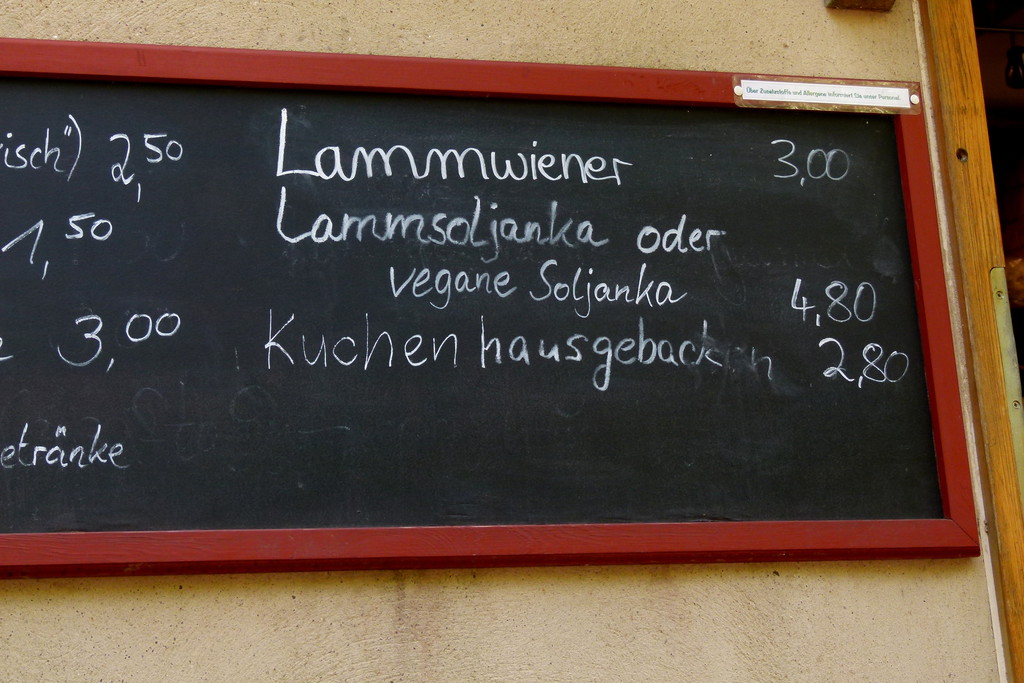 Über Zusatzstoffe und Allergene informiert Sie unser Personal.
isch") 2,50
1,50
3,00
etränke
Lammwiener 3,00
Lammsoljanka oder
vegane Soljanka 4,80
Kuchen hausgebacken 2,80